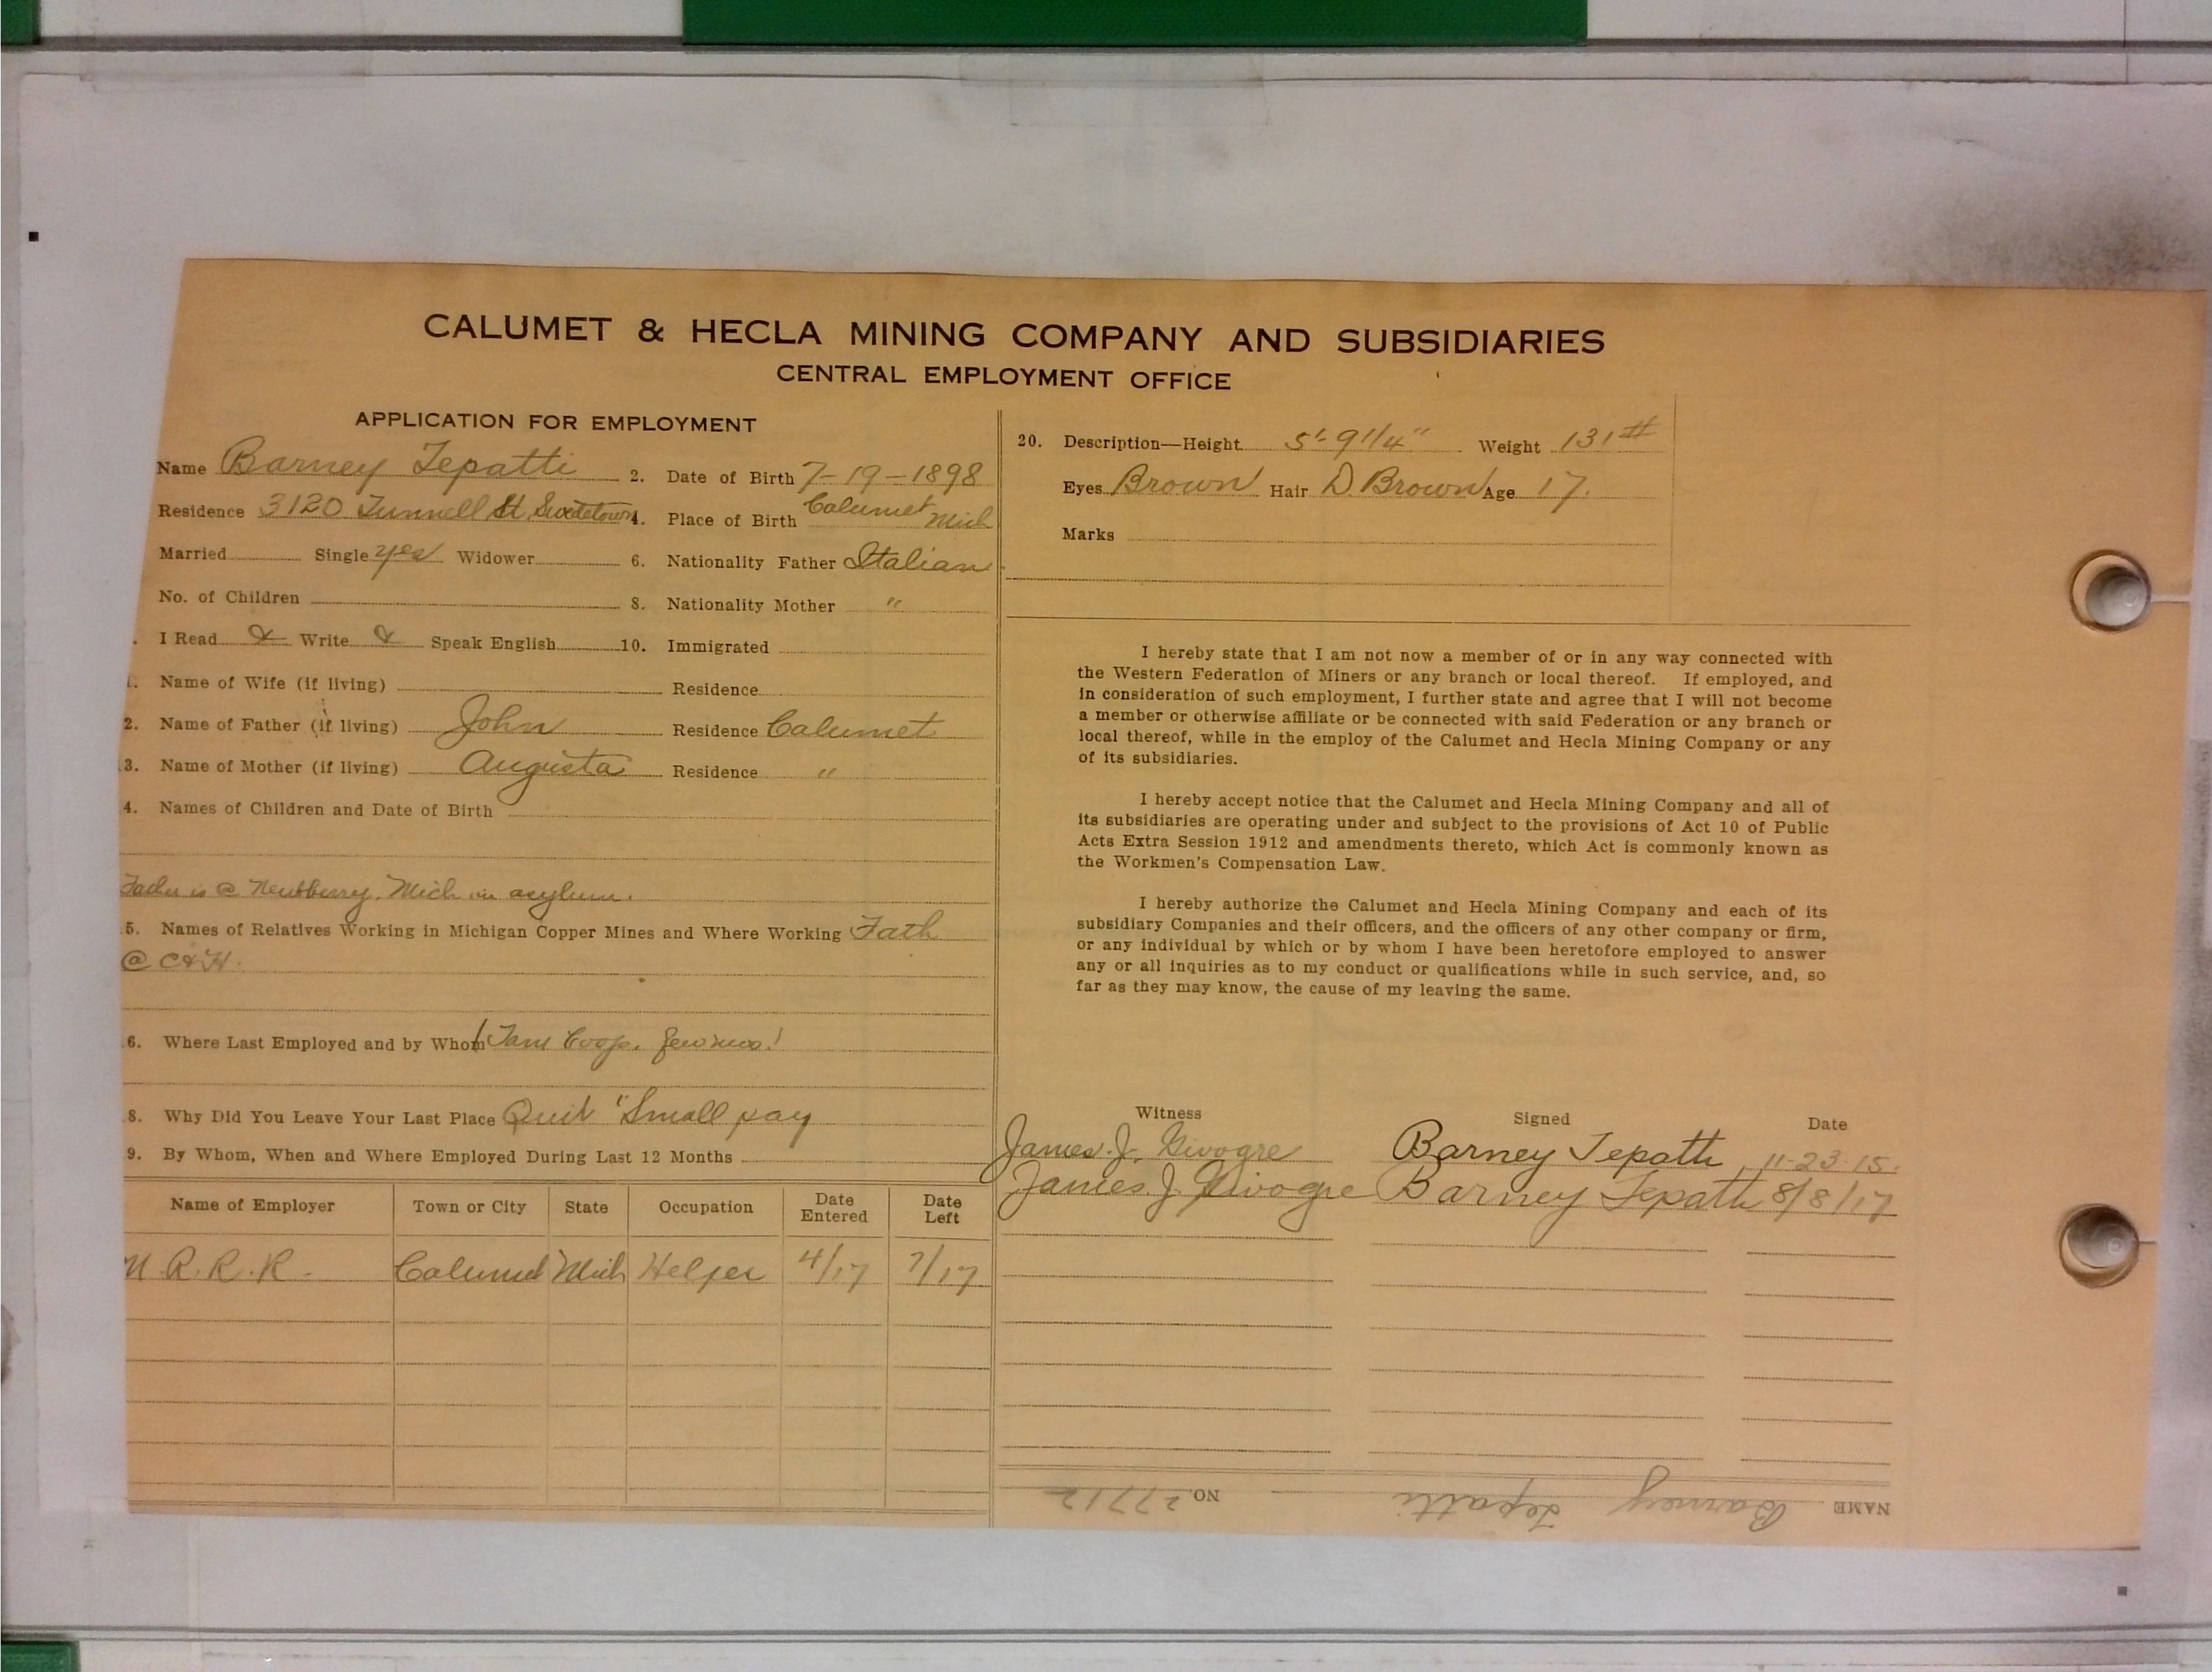 CALUMET & HECLA MINING COMPANY AND SUBSIDIARIES
CENTRAL EMPLOYMENT OFFICE
APPLICATION FOR EMPLOYMENT
Name Barney Tepatti 2. Date of Birth 7-19-1898
Residence 3120 Tunnell St Swedetown 4. Place of Birth Calumet Mich
Married Single yes Widower 6. Nationality Father Italian
No. of Children 8. Nationality Mother "
I Read & Write & Speak English 10. Immigrated
Name of Wife (if living) Residence
2. Name of Father (if living) John Residence Calumet
3. Name of Mother (if living) Augusta Residence "
4. Names of Children and Date of Birth
Father is @ Newberry, Mich in asylum.
5. Names of Relatives Working in Michigan Copper Mines and Where Working Fath
@ C&H.
6. Where Last Employed and by Whom Tam Coop. few mos!
8. Why Did You Leave Your Last Place Quit "Small pay
9. By Whom, When and Where Employed During Last 12 Months
Name of Employer Town or City State Occupation Date Entered Date Left
M.R.R.R. Calumet Mich Helper 4/17 7/17
20. Description—Height 5'-9 1/4" Weight 131#
Eyes Brown Hair D. Brown Age 17.
Marks
I hereby state that I am not now a member of or in any way connected with
the Western Federation of Miners or any branch or local thereof. If employed, and
in consideration of such employment, I further state and agree that I will not become
a member or otherwise affiliate or be connected with said Federation or any branch or
local thereof, while in the employ of the Calumet and Hecla Mining Company or any
of its subsidiaries.
I hereby accept notice that the Calumet and Hecla Mining Company and all of
its subsidiaries are operating under and subject to the provisions of Act 10 of Public
Acts Extra Session 1912 and amendments thereto, which Act is commonly known as
the Workmen's Compensation Law.
I hereby authorize the Calumet and Hecla Mining Company and each of its
subsidiary Companies and their officers, and the officers of any other company or firm,
or any individual by which or by whom I have been heretofore employed to answer
any or all inquiries as to my conduct or qualifications while in such service, and, so
far as they may know, the cause of my leaving the same.
Witness Signed Date
James. J. Givogre Barney Tepatti 11-23-15.
James. J. Givogre Barney Tepatti 8/8/17
NAME Barney Tepatti NO. 27712